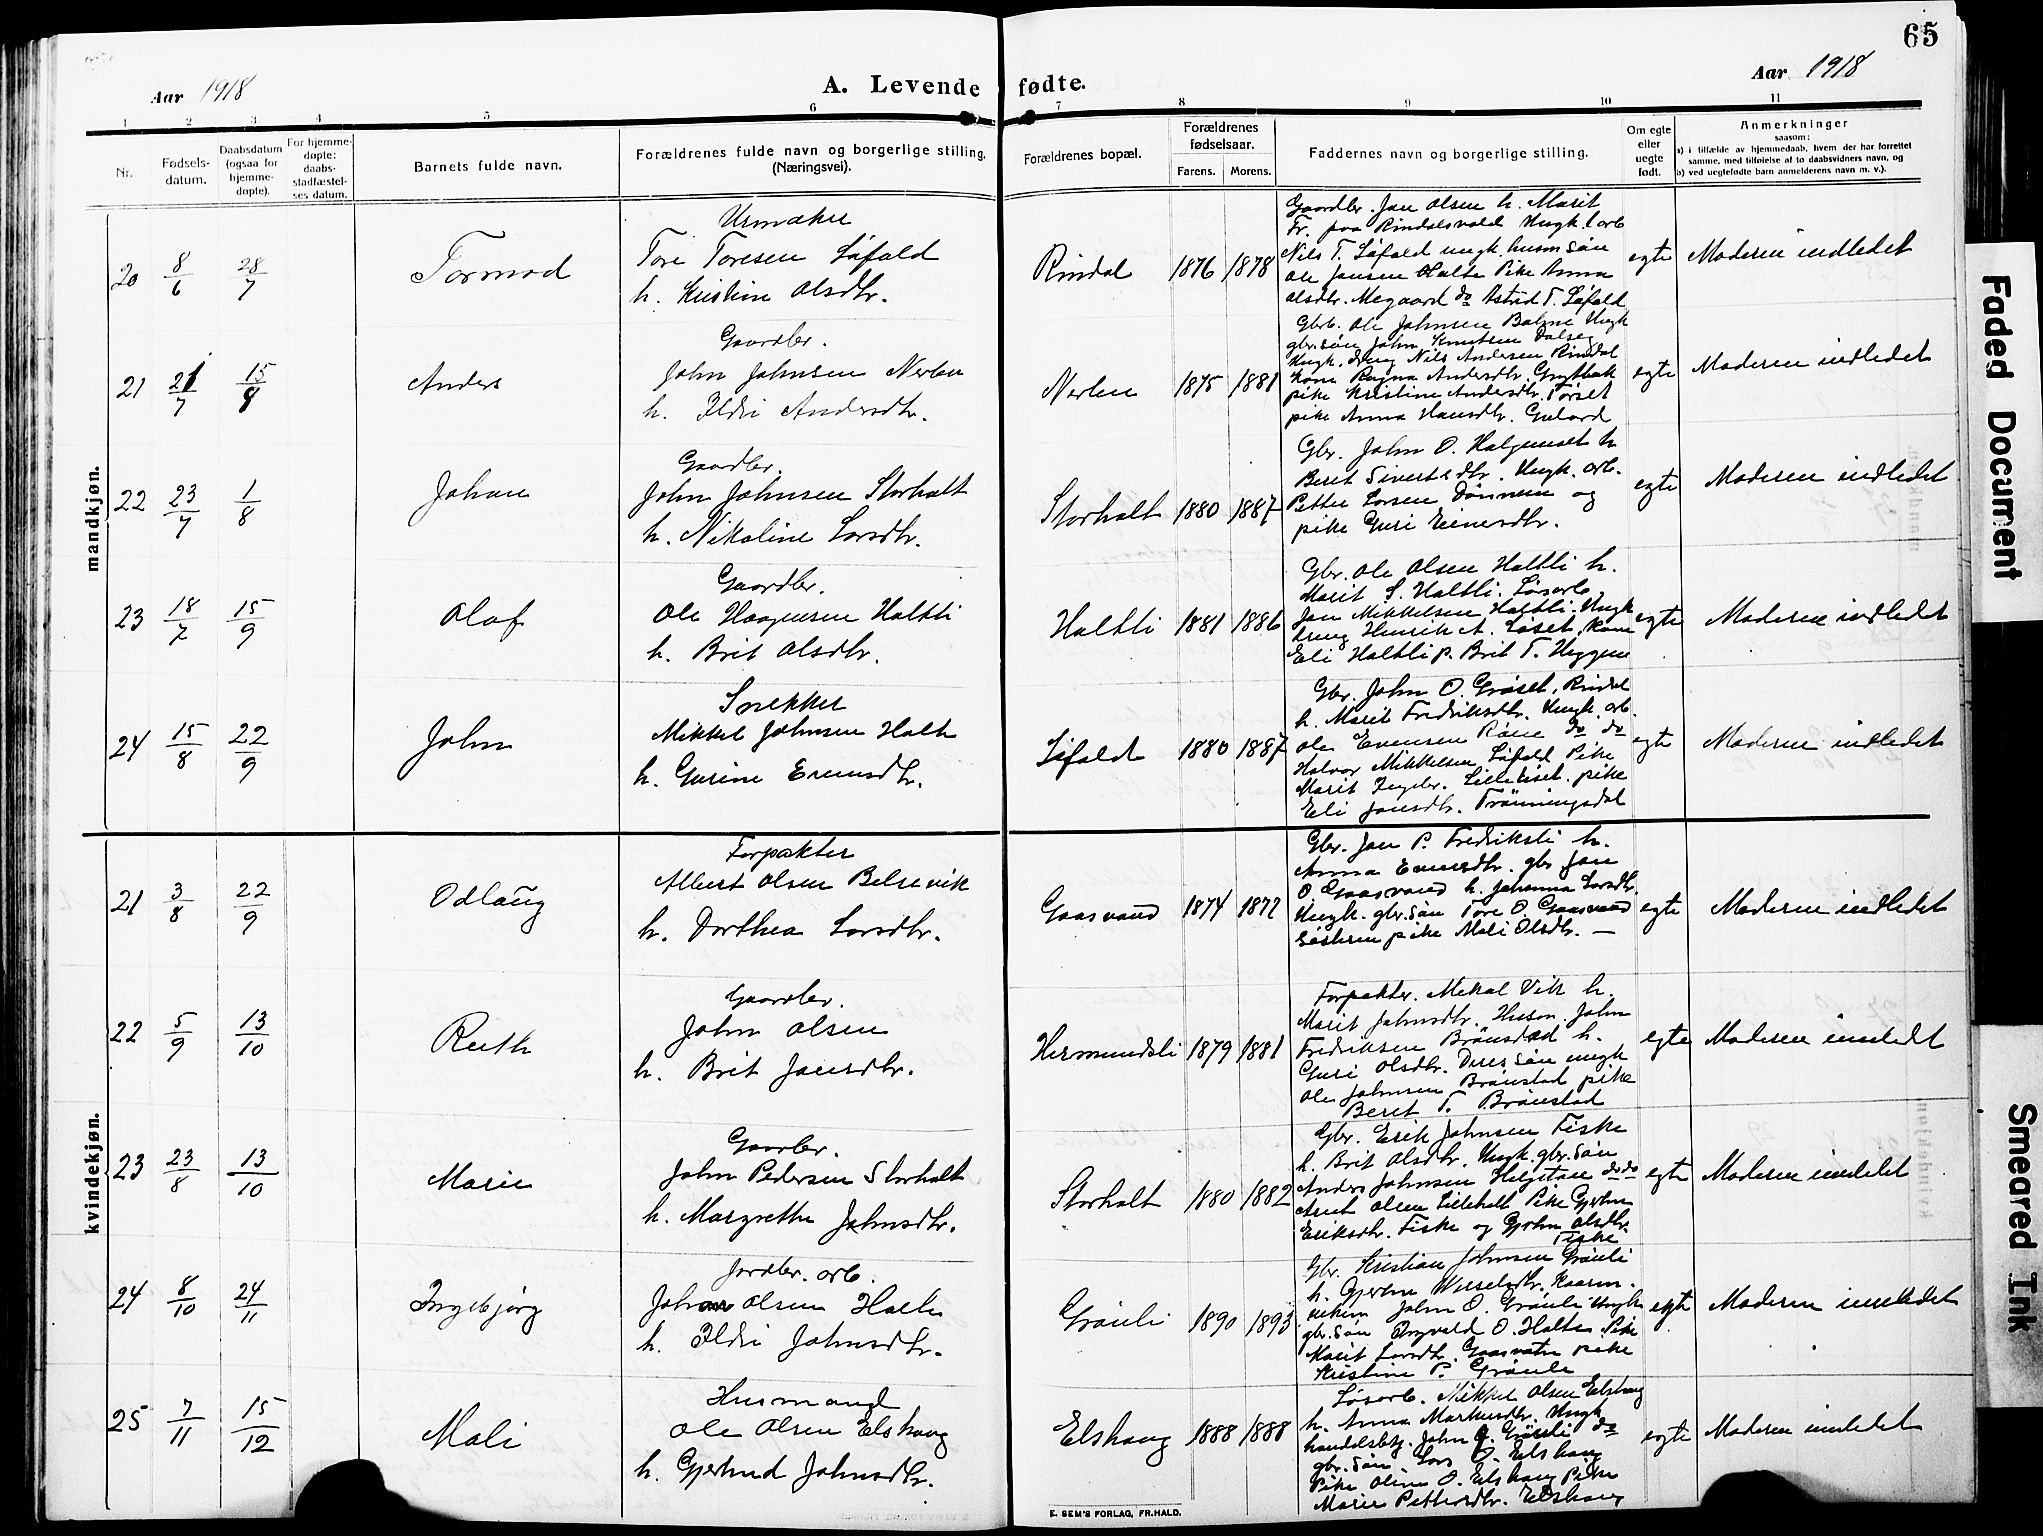 65
Aar 1918
A. Levende fødte.
Aar 1918
1 2 3 4 5 6 7 8 9 10 11
Nr.
Fødsels-
datum.
Daabsdatum
(ogsaa for
hjemme-
døpte).
For hjemme-
døpte:
daabs-
stadfæstel-
ses datum.
Barnets fulde navn.
Forældrenes fulde navn og borgerlige stilling.
(Næringsvei).
Forældrenes bopæl.
Forældrenes
fødselsaar.
Farens. Morens.
Faddernes navn og borgerlige stilling.
Om egte
eller
uegte
født.
Anmerkninger
saasom:
a) i tilfælde av hjemmedaab, hvem der har forrettet
samme, med tilføielse af to daabsvidners navn, og
b) ved uegtefødte barn anmelderens navn m. v.).
mandkjøn.
20 8/6 28/7 Tormod
Urmaker
Tore Toresen Løfald
h. Kristine Olsdtr.
Rindal 1876 1878
Gaardbr. Jon Olsen h. Marit
Fr. paa Rindalsvold Ungk. arb
Nils T. Løfald ungk. husm søn
Ole Jonsen Halte Pike Anna
Olsdtr. Megaard do Astrid T. Løfald
egte Moderen indledet
21 21/7 15/8 Anders
Gaardbr.
John Johnsen Nerlen
h. Ildri Andersdtr.
Nerlen 1875 1881
Gbr. Ole Johnsen Bolme Ungk
gbr.søn John Knutsen Dalseg
Ungk. dreng Nils Andersen Rindal
kone Ragna Andersdtr. Grytbak
pike Kristine Andersdtr. Tørset
pike Anna Hansdtr.
egte Moderen indledet
22 23/7 1/8 Johan
Gaardbr.
John Johnsen Storholt
h. Nikoline Larsdtr.
Storholt 1880 1887
Gbr. John O. Halgunset h
Beret Sivertsdtr. Ungk. arb.
Petter Larsen Dønnem og
pike Guri Einersdtr.
egte Moderen indledet
23 18/7 15/9 Olaf
Gaardbr.
Ole Haagensen Haltli
h. Brit Olsdtr.
Haltli 1881 1886
Gbr. Ole Olsen Haltli h.
Marit S. Haltli. Løsarb.
Jon Mikkelsen Haltli. Ungk
dreng Henrik A. Løset, kone
Eli Haltli p. Brit T. Heggem
egte Moderen indledet
24 15/8 22/9 John
Snekker
Mikkel Johnsen Holte
h. Gurine Evensdtr.
Løfald 1880 1887
Gbr. John O. Grøset, Rindal
h. Marit Fredriksdtr. Ungk. arb.
Ole Evensen Røne do do
Halvor Mikkelsen Løfald Pike
Marit Ingebr. Lilleløset. pike
Eli Jonsdtr. Trønningsdal
egte Moderen indledet
kvindekjøn.
21 3/8 22/9 Odlaug
Forpakter
Albert Olsen Belsevik
h. Dorthea Larsdtr.
Gaasvand 1874 1877
Gbr. Jon P. Fredriksli h.
Anna Evensdtr. gbr Jon
O Gaasvand h. Johanna Larsdtr.
Ungk. gbr.søn Tore O. Gaasvand
Søsteren pike Mali Olsdtr. —
egte Moderen indledet
22 5/9 13/10 Ruth
Gaardbr.
John Olsen
h. Brit Jonsdtr.
Hermundsli 1879 1881
Forpakter. Mikal Vik h.
Marit Johnsdtr. Husm. John
Fredriksen Brønstad h.
Guri Olsdtr. Deres søn ungk
Ole Johnsen Brønstad pike
Beret T. Brønstad
egte Moderen innledet
23 23/8 13/10 Marie
Gaarbr.
John Pedersen Storholt
h. Margrethe Johnsdtr.
Storholt 1880 1882
Gbr. Erik Johnsen Fiske
h. Brit Olsdtr. Ungk. gbr.søn
Anders Johnsen Helgetun do do
Arnt Olsen Lilleholt Pike Gjertrn
Eriksdtr. Fiske og Gjertrn Olsdtr.
Fiske
egte Moderen innledet
24 8/10 24/11 Ingebjørg
Jordbr. arb.
Johan Olsen Holte
h. Ildri Johnsdtr.
Grønli 1890 1893
Gbr. Kristian Johnsen Grønli
h. Gjertrn
John O. Grønli Ungk
gbr.søn Ingvald O. Halten Pike
Marit Larsdtr. Gaasvatn pike
Kristine P. Grønli
egte Moderen innledet
25 7/11 15/12 Mali
Husmand
Ole Olsen Elshaug
h. Gjertrud Johnsdtr.
Elshaug 1888 1888
Løsarb. Mikkel Olsen Elshaug
h. Anna Markusdtr. Ungk
handelsbtj. John Grønli do
gbr.søn Lars O. Elshaug
Pike Oline O. Elshaug Pike
Marie Pettersdtr. Elshaug
egte Moderen innledet
E. SEM'S FORLAG, FR.HALD.
Faded Document
Smeared Ink